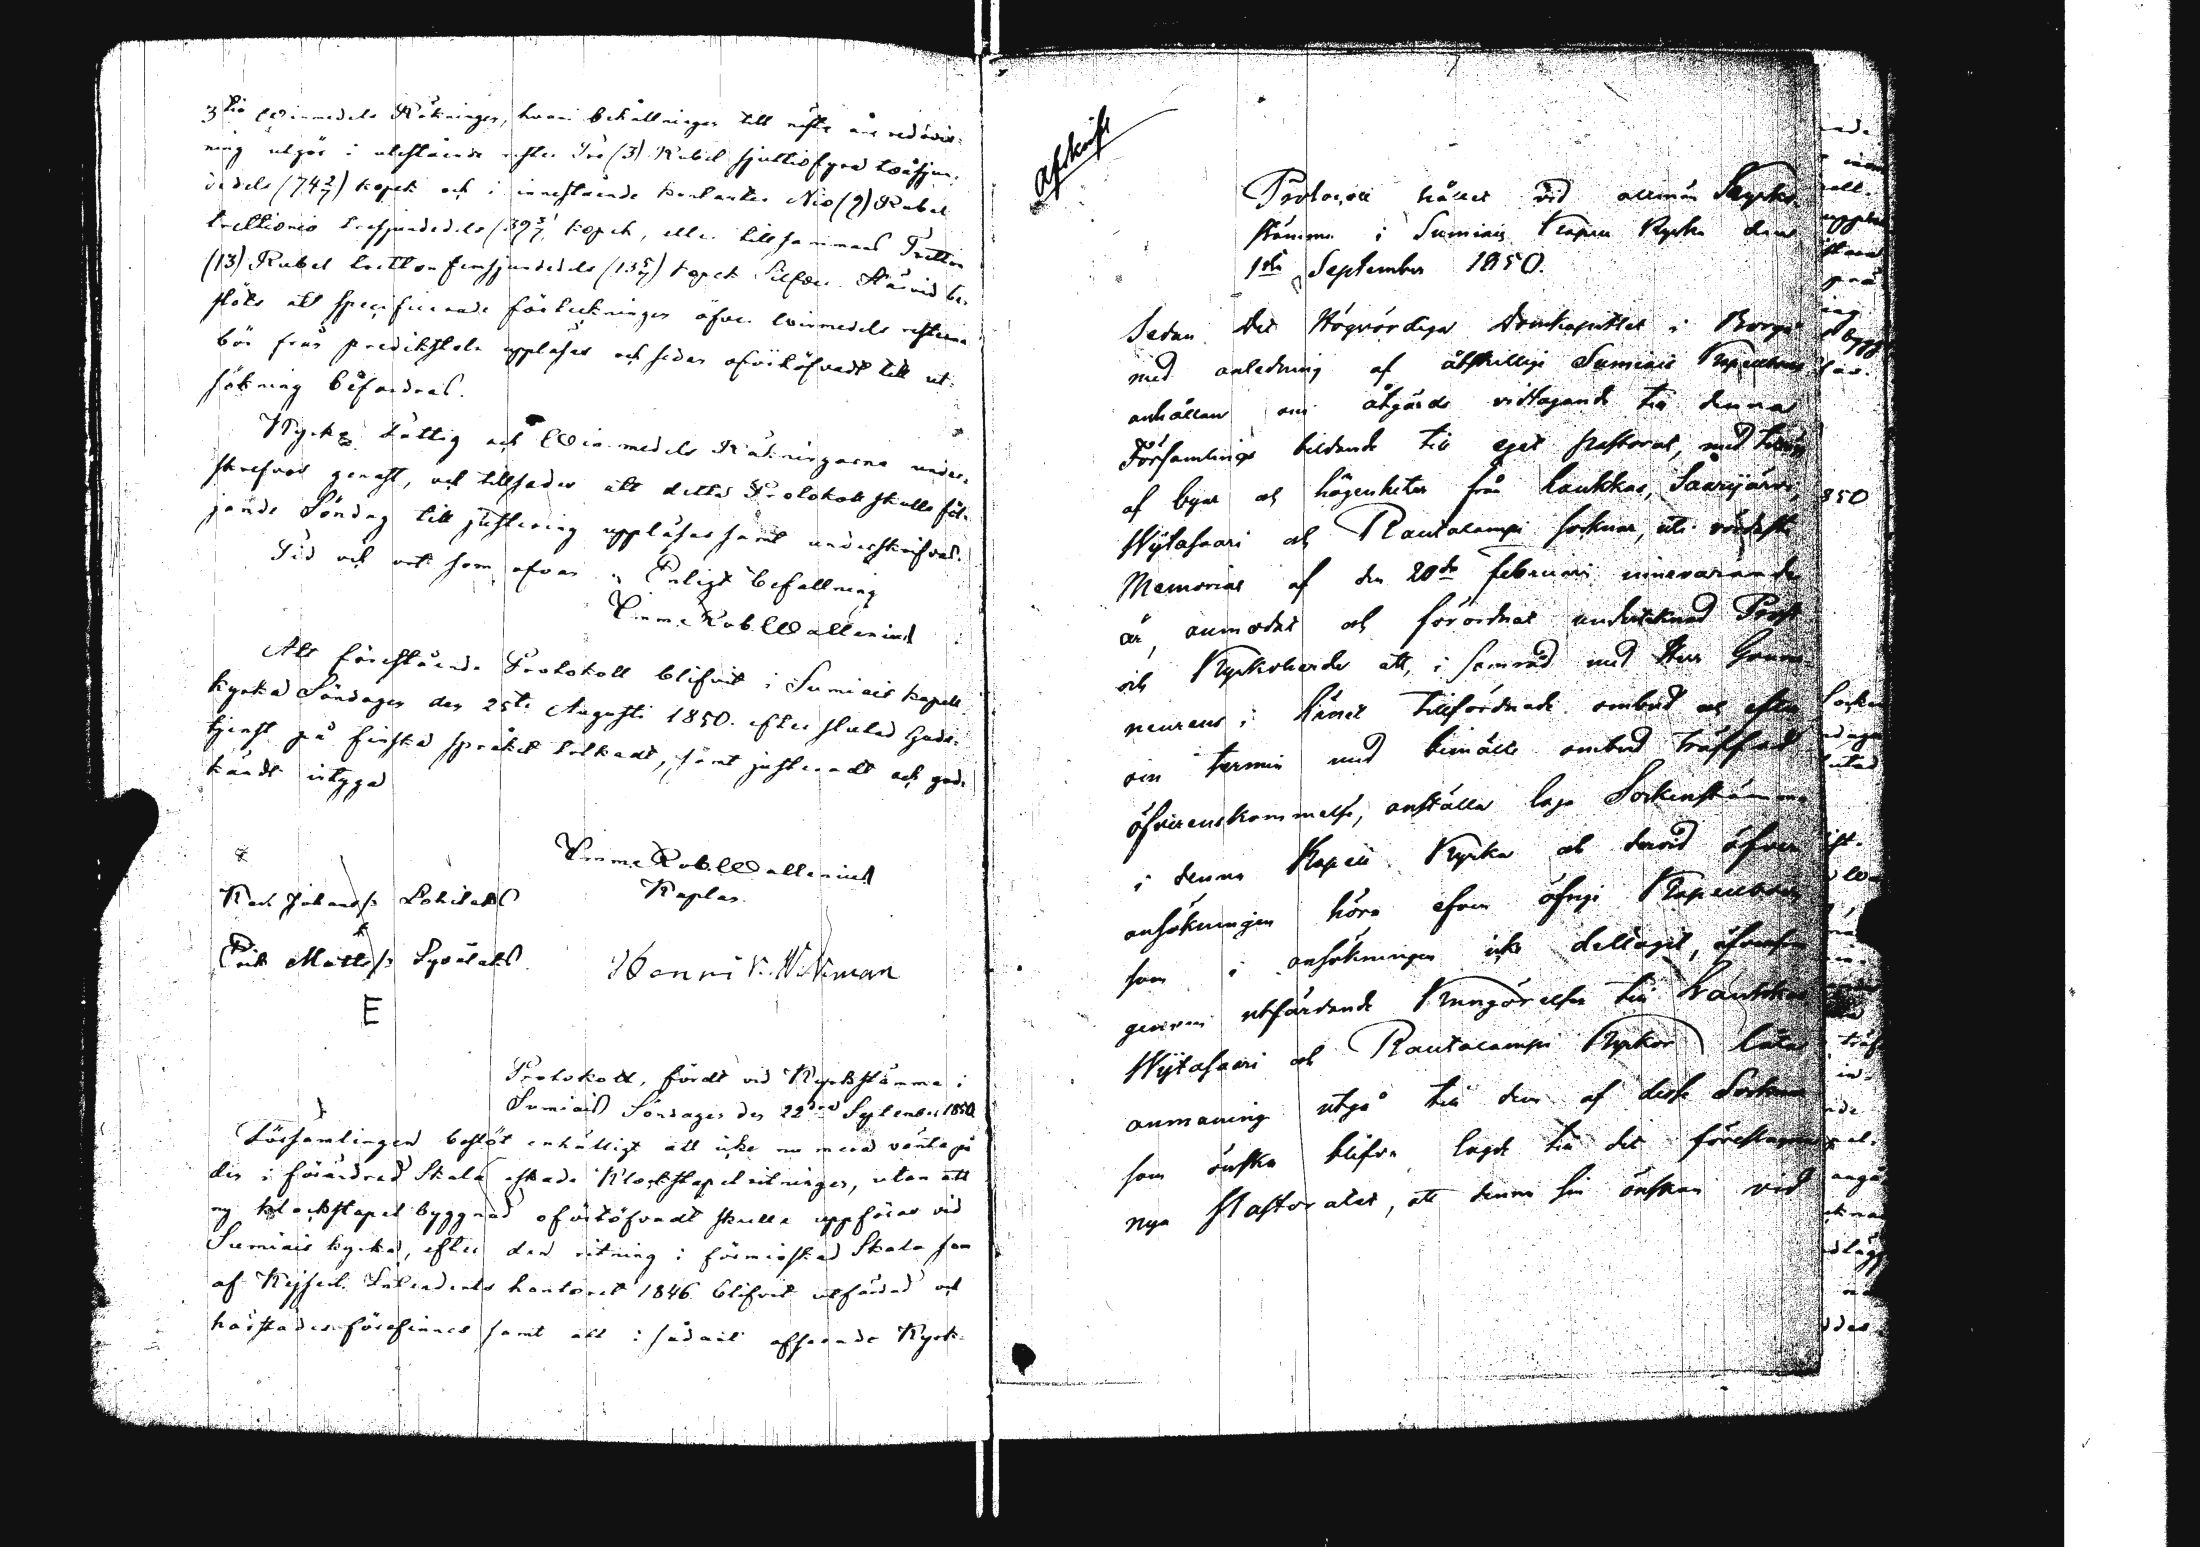 3tio Winmedels Räkningen, hvari behållningen till nästa års redovis-
ning utgör i utestående rester Tre (3) Rubel sjuttiofyra tvåsjun-
dedels (74 2/7) kopek och i innestående kontanter Nio (9) Rubel
trettionio tresjundedels (39 3/7) kopek, eller tillsammans Tretton
(13) Rubel tretton femsjundedels (13 5/7) kopek Silfver. Härvid be-
slöts att specificerade förteckningen öfver Winmedels resterna
bör från predikstolen uppläsas och sedan ofördröfvadt till ut-
sökning befordras.
Kyrko, Fattig och Winmedels Räkningarna under-
skrefvos genast, och tillsades att detta Protokoll skulle föl-
jande Söndag till justering uppläsas samt underskrifvas.
Tid och ort som ofvan Enligt befallning
Emm. Rob. Wallenius
Att förestående Protokoll blifvit i Sumiais kapell
kyrka Söndagen den 25te Augusti 1850. efter slutad Guds-
tjenst på finska språket tolkadt, samt justeradt och god-
kändt intygas
Emm. Rob. Wallenius
Kaplan.
Karl Johansson
Erik Mattsson
Henrik
E
Protokoll, fördt vid Kyrkstämma i
Sumiais Söndagen den 22dra September 1850
Församlingen beslöt enhälligt att icke nu mera vänta på
den i förändrad Skala äskade Klockstapelritningen, utan att
ny klockstapel byggnad skulle uppföras vid
Sumiais kyrka, efter den ritning i förminskad Skala som
af Kejserl. Intendents kontoret 1846 blifvit utfärdad och
härstädes förefinnes samt att i sådant afseende Kyrk-
Afskrift
Protocoll hållet vid allmän Kyrko-
stämma i Sumiais Capell Kyrka den
1sta September 1850.
Sedan Det Högvördiga Domkapitlet i Borgå
med anledning af åtskillige Sumiais Kapellboers
anhållan om åtgärds vidtagande till denna
Församlings bildande till eget pastorat, med tillägg
af byar och lägenheter från Laukkas, Saarijärvi,
Wijtasaari och Rautalampi socknar, uti
Memorial af den 20de Februari innevarande
år, anmodat och förordnat undertecknad Prost
och Kyrkoherde att, i samråd med Herr Gouver-
neurens i länet tillförordnade ombud och efter
om termin med bemälte ombud träffad
öfverenskommelse, anställa laga Sockenstämma
i denna Kapell Kyrka och dervid öfver
ansökningen höra äfven öfrige Kapellboer
som i ansökningen icke deltagit, äfvensom
genom utfärdande Kungörelser till Laukkas
Wijtasaari och Rautalampi Kyrkor låta
anmaning utgå till dem af desse Socknar
som önska blifva lagde till det föreslagna
nya Pastoratet, att denna sin önskan vid
850